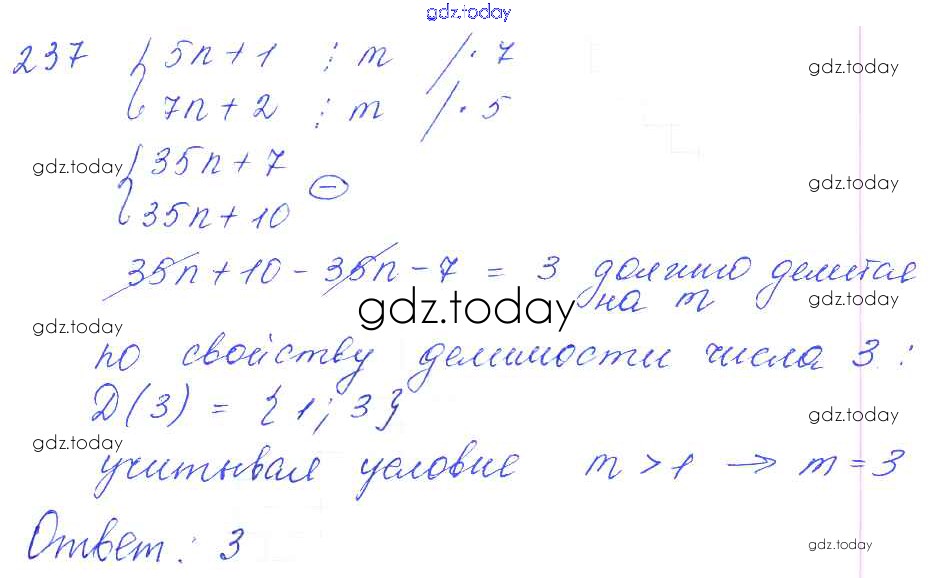 gdz.today
237 { 5n + 1 ⋮ m /· 7
gdz.today
{ 7n + 2 ⋮ m /· 5
gdz.today { 35n + 7
gdz.today
{ 35n + 10 ⊖
35n + 10 - 35n - 7 = 3 должно делится
на m
gdz.today
gdz.today
gdz.today
по свойству делимости числа 3 :
D(3) = {1; 3}
gdz.today
gdz.today
учитывая условие m > 1 → m = 3
Ответ: 3
gdz.today